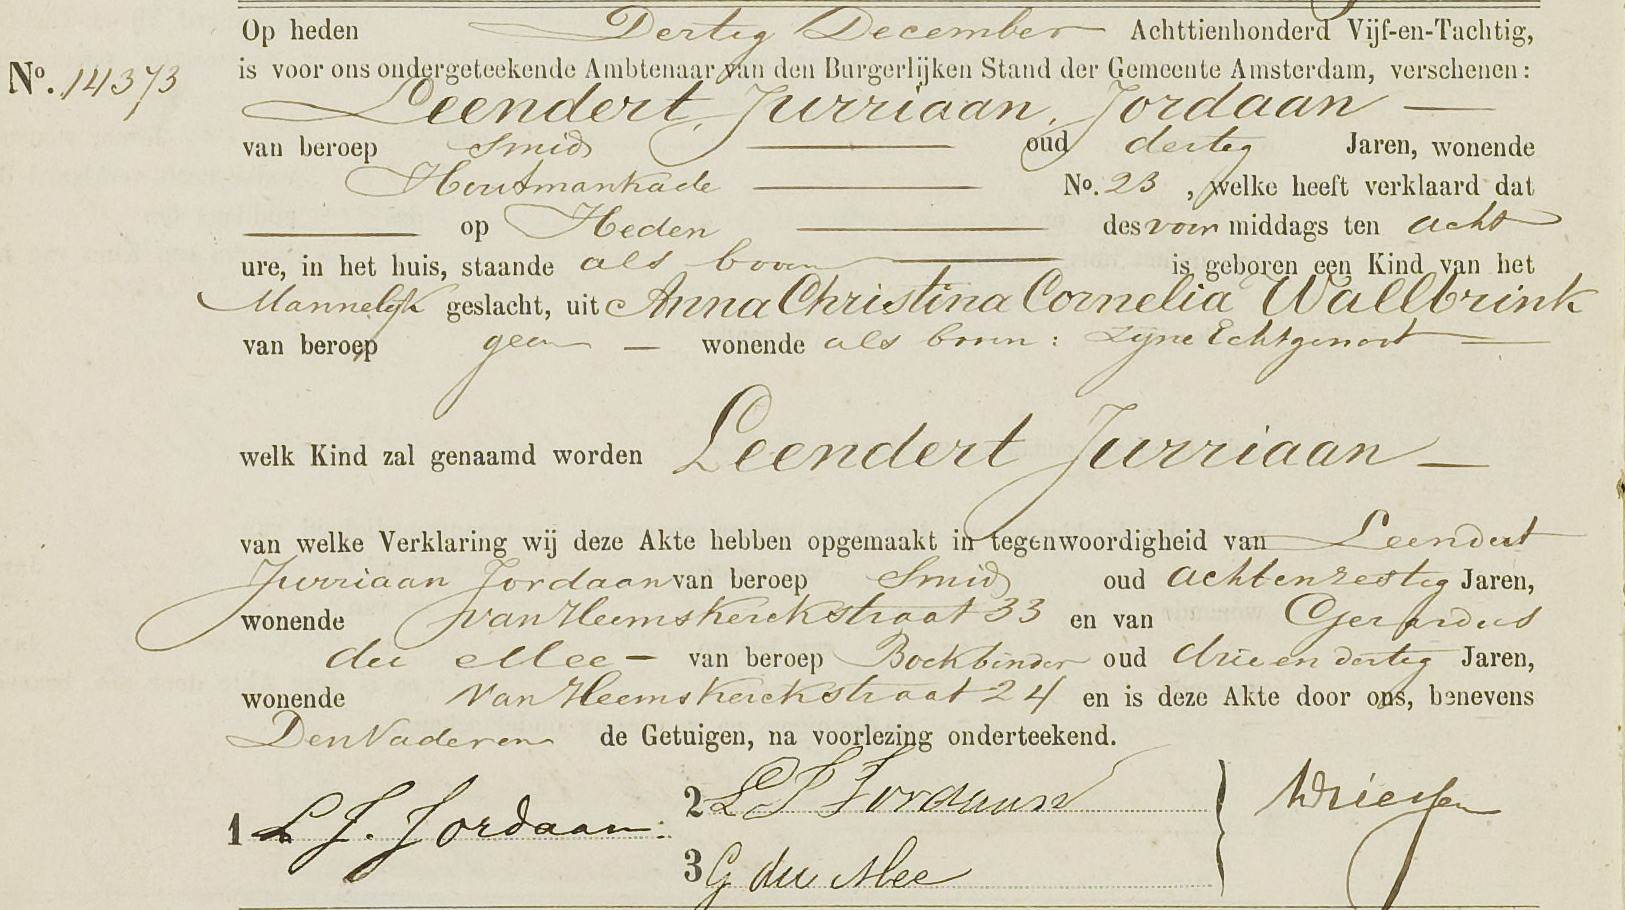 Op heden Dertig December Achttienhonderd Vijf-en-Tachtig,
No. 14373 is voor ons ondergeteekende Ambtenaar van den Burgerlijken Stand der Gemeente Amsterdam, verschenen:
Leendert Jurriaan Jordaan
van beroep Smid oud dertig Jaren, wonende
Houtmankade No. 23, welke heeft verklaard dat
op Heden des voor middags ten acht
ure, in het huis, staande als boven is geboren een Kind van het
Mannelijk geslacht, uit Anna Christina Cornelia Wallbrink
van beroep geen — wonende als boven: zijne Echtgenoot
welk Kind zal genaamd worden Leendert Jurriaan
van welke Verklaring wij deze Akte hebben opgemaakt in tegenwoordigheid van Leendert
Jurriaan Jordaan van beroep Smid oud achtenzestig Jaren,
wonende van Heemskerckstraat 33 en van Gerardus
du Mee — van beroep Boekbinder oud drie en dertig Jaren,
wonende Van Heemskerckstraat 24 en is deze Akte door ons, benevens
Den Vader en de Getuigen, na voorlezing onderteekend.
1 L J. Jordaan 2 L J Jordaan
3 G du Mee